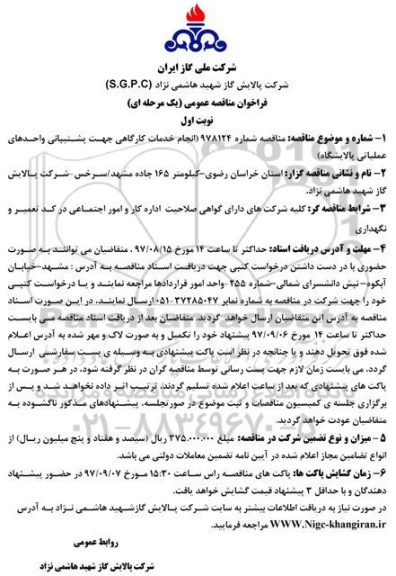 شرکت ملی گاز ایران
شرکت پالایش گاز شهید هاشمی نژاد (S.G.P.C)
فراخوان مناقصه عمومی (یک مرحله ای)
نوبت اول
۱- شماره و موضوع مناقصه: مناقصه شماره ۹۷۸۱۲۴ (انجام خدمات کارگاهی جهت پشتیبانی واحدهای
عملیاتی پالایشگاه)
۲- نام و نشانی مناقصه گزار: استان خراسان رضوی-کیلومتر ۱۶۵ جاده مشهد/سرخس -شرکت پالایش
گاز شهید هاشمی نژاد.
۳- شرایط مناقصه گر: کلیه شرکت های دارای گواهی صلاحیت اداره کار و امور اجتماعی در کد تعمیر و
نگهداری
۴- مهلت و آدرس دریافت اسناد: حداکثر تا ساعت ۱۴ مورخ ۹۷/۰۸/۱۵ ، متقاضیان می توانند به صورت
حضوری با در دست داشتن درخواست کتبی جهت دریافت اسناد مناقصه به آدرس : مشهد-خیابان
آبکوه-نبش دانشسرای شمالی-شماره ۲۵۵ -واحد امور قراردادها مراجعه نمایند و یا درخواست کتبی
خود را جهت شرکت در مناقصه به شماره نمابر ۳۷۲۸۵۰۴۷-۰۵۱ ارسال نمایند، در این صورت اسناد
مناقصه به آدرس این متقاضیان ارسال خواهد گردید. متقاضیان بعد از دریافت اسناد مناقصه می بایست
حداکثر تا ساعت ۱۴ مورخ ۹۷/۰۹/۰۶ پیشنهاد خود را تکمیل و به صورت لاک و مهر شده به آدرس اعلام
شده فوق تحویل دهند و یا چنانچه در نظر است پاکت پیشنهادی به وسیله ی پست سفارشی ارسال
گردد، می بایست زمان لازم جهت پست رسانی توسط مناقصه گران در نظر گرفته شود. در هر صورت به
پاکت های پیشنهادی که بعد از ساعت اعلام شده تسلیم گردند، ترتیب اثر داده نخواهد شد و پس از
برگزاری جلسه ی کمیسیون مناقصات و ثبت موضوع در صورتجلسه، پیشنهادهای مذکور ناگشوده به
متقاضیان عودت خواهد گردید.
۵ - میزان و نوع تضمین شرکت در مناقصه: مبلغ ۳۷۵.۰۰۰.۰۰۰ ریال (سیصد و هفتاد و پنج میلیون ریال) از
انواع تضامین مجاز اعلام شده در آیین نامه تضمین معاملات دولتی می باشد.
۶- زمان گشایش پاکت ها: پاکت های مناقصه راس ساعت ۱۵:۳۰ مورخ ۹۷/۰۹/۰۷ در حضور پیشنهاد
دهندگان و با حداقل ۳ پیشنهاد قیمت گشایش خواهد یافت.
در صورت نیاز به دریافت اطلاعات بیشتر به سایت شرکت پالایش گاز شهید هاشمی نژاد به آدرس
WWW.Nigc-khangiran.ir مراجعه فرمایید.
روابط عمومی
شرکت پالایش گاز شهید هاشمی نژاد
۰۲۱-۸۸۳۴۹۶۷۰-۵